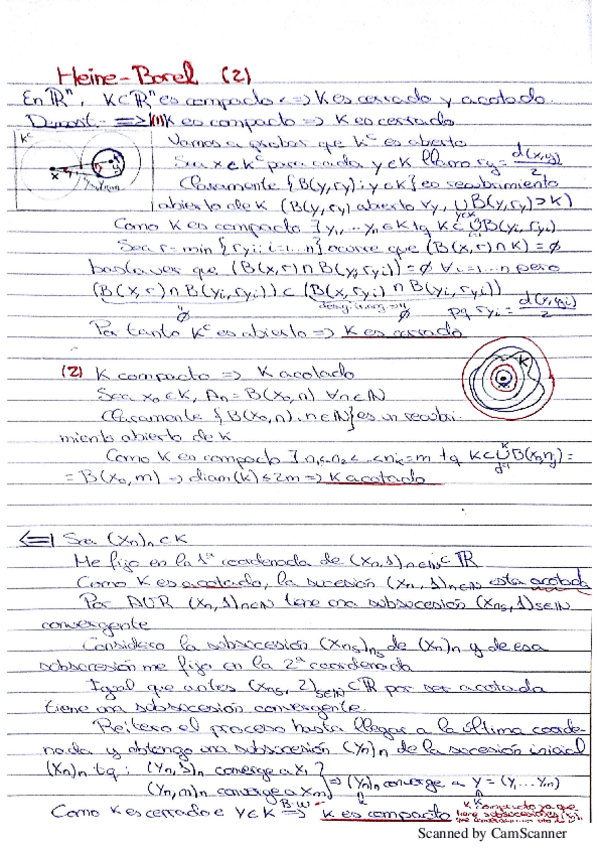 Heine-Borel (2)
En ℝⁿ, K⊂ℝⁿ es compacto <=> K es cerrado y acotado.
Demost.- => (1) K es compacto => K es cerrado
Kᶜ
x
y
Vamos a probar que Kᶜ es abierto
Sea x∈Kᶜ para cada y∈K llamo r_y = d(x,y)/2
Claramente {B(y,r_y): y∈K} es recubrimiento
abierto de K (B(y,r_y) abierto ∀y, ∪_{y∈K} B(y,r_y)⊃K)
Como K es compacto ∃ y₁,...yₙ∈K tq K⊂ ∪ B(yᵢ,r_yᵢ)
Sea r=min{r_yᵢ: i=1...n} ocurre que (B(x,r)∩K)=∅
basta ver que (B(x,r)∩B(yᵢ,r_yᵢ))=∅ ∀i=1...n pero
(B(x,r)∩B(yᵢ,r_yᵢ)) ⊂ (B(x,r_yᵢ)∩B(yᵢ,r_yᵢ))
∅ ∅ pq r_yᵢ = d(x,yᵢ)/2
Por tanto Kᶜ es abierto => K es cerrado
(2) K compacto => K acotado
K
x₀
Sea x₀∈K, Aₙ=B(x₀,n) ∀n∈ℕ
Claramente {B(x₀,n), n∈ℕ} es un recubri-
miento abierto de K
Como K es compacto ∃ n₁<n₂<..<n_k=m tq K⊂ ∪ B(x₀,nⱼ)=
=B(x₀,m) => diam(K)≤2m => K acotado
<=| Sea (xₙ)ₙ⊂K
Me fijo en la 1ª coordenada de (xₙ,1)n∈ℕ⊂ℝ
Como K es acotado, la sucesión (xₙ,1)n∈ℕ está acotada
Por (xₙ,1)n∈ℕ tiene una subsucesión (xₙₛ,1)s∈ℕ
convergente
Considero la subsucesión (xₙₛ)ₙₛ de (xₙ)ₙ y de esa
subsucesión me fijo en la 2ª coordenada
Igual que antes (xₙₛ,2)s∈ℕ⊂ℝ por ser acotada
tiene una subsucesión convergente.
Reitero el proceso hasta llegar a la última coorde-
nada y obtengo una subsucesión (yₙ)ₙ de la sucesión inicial
(xₙ)ₙ tq: (yₙ,1)ₙ converge a x₁
(yₙ,m)ₙ converge a xₘ } => (yₙ)ₙ converge a y=(y₁...yₘ)
Como K es cerrado e y∈K =>B-W K es compacto
K compacto ya que
tiene subsucesiones
Scanned by CamScanner